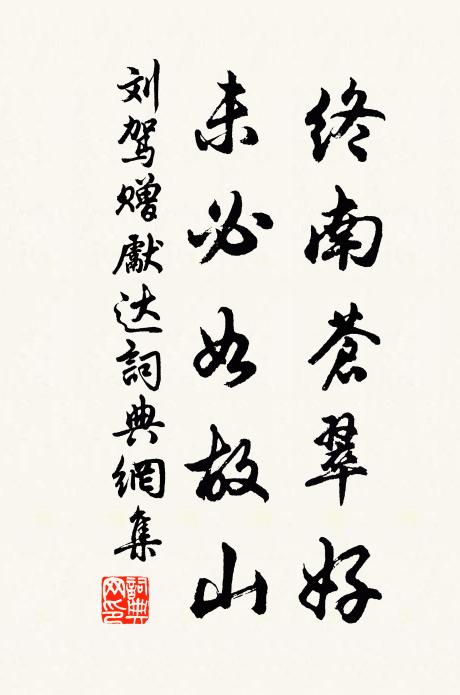 终南蒼翠好
未必如故山
刘驾赠獻达詞典網集
詞典网印